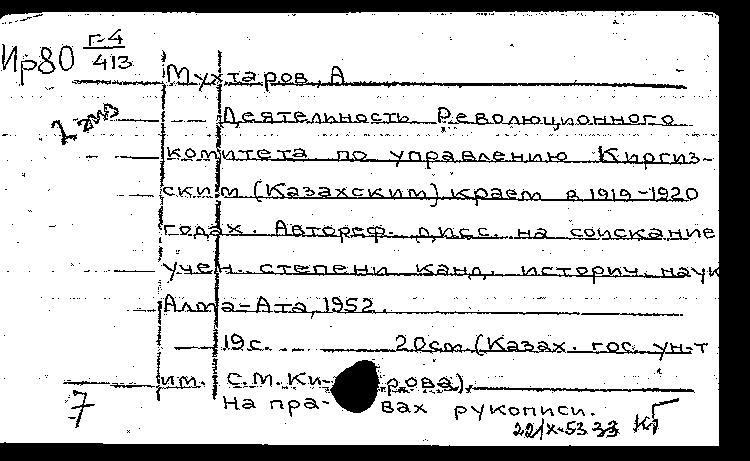 Ир80 г-4
413
Мухтаров, А
2 экз
Деятельность Революционного
комитета по управлению Киргиз-
ским (Казахским) краем в 1919-1920
годах. Автореф. дисс. на соискание
учен. степени канд. историч. наук
Алма-Ата, 1952.
19с. 20см (Казах. гос. ун-т
им. С.М. Ки-рова).
На пра-вах рукописи.
7
22/X-53 33 КГ